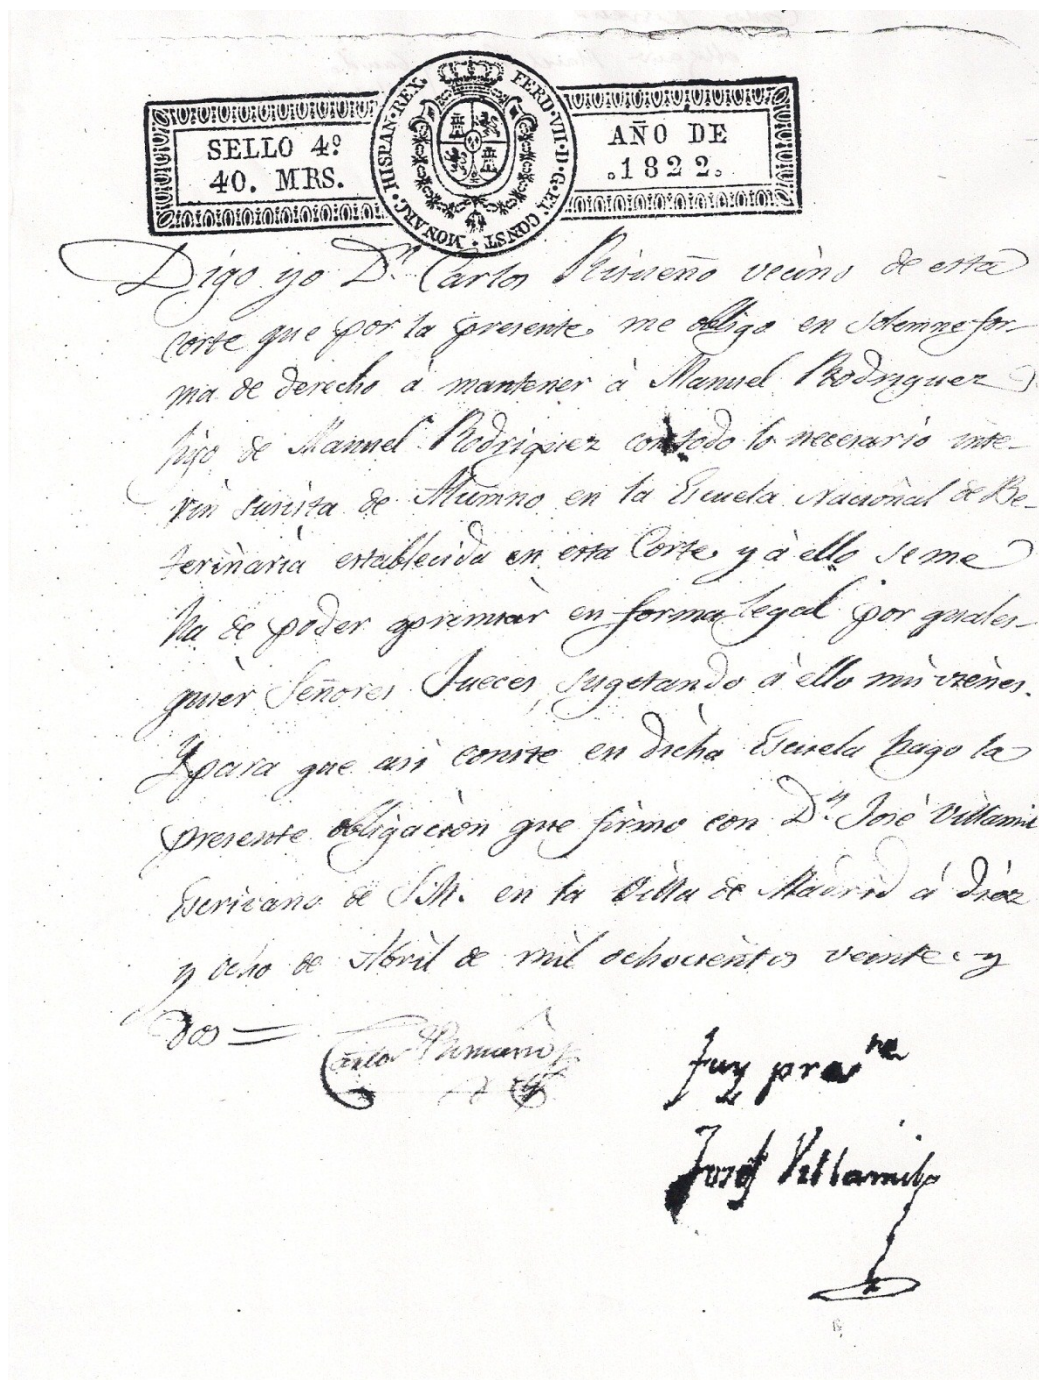 SELLO 4º
40. MRS.
HISPAN·REX. FERD·VII·D·G·ET CONST·MONARC·
AÑO DE
1822.
Digo yo D.n Carlos Risueño vecino de esta
Corte que por la presente me obligo en solemne for-
ma de derecho á mantener á Manuel Rodriguez
hijo de Manuel Rodriguez con todo lo necesario inte-
rin subsista de Alumno en la Escuela Nacional de Be-
terinaria establecida en esta Corte y á ello se me
ha de poder apremiar en forma legal por quales-
quier Señores Jueces, sugetando á ello mis vienes.
Y para que asi conste en dicha Escuela hago la
presente obligacion que firmo con D.n José Villamil
Escrivano de S.M. en la Villa de Madrid á diez
y ocho de Abril de mil ochocientos veinte y
dos =
Carlos Risueño
Fuy pres.te
Josef Villamil